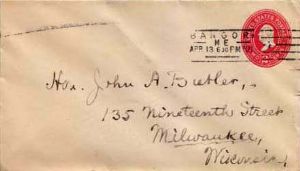 BANGOR
ME
APR 13 6
PM
Hon. John A. Butler,
135 Nineteenth Street
Milwaukee,
Wisconsin.